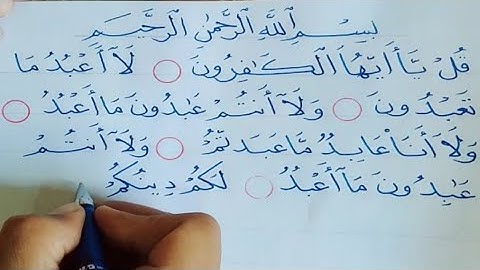 بِسْمِ اللَّهِ الرَّحْمَٰنِ الرَّحِيمِ
قُلْ يَٰٓأَيُّهَا ٱلْكَٰفِرُونَ ○ لَآ أَعْبُدُ مَا
تَعْبُدُونَ ○ وَلَآ أَنتُمْ عَٰبِدُونَ مَآ أَعْبُدُ ○
وَلَآ أَنَا۠ عَابِدٌ مَّا عَبَدتُّمْ ○ وَلَآ أَنتُمْ
عَٰبِدُونَ مَآ أَعْبُدُ ○ لَكُمْ دِينُكُمْ